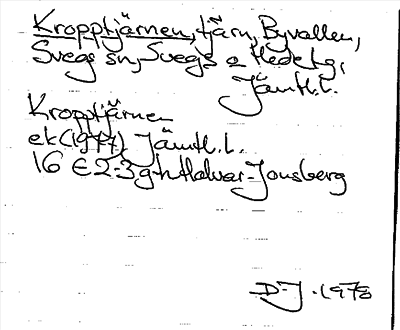 Kropptjärnen, tjärn, Byvallen,
Svegs sn, Svegs o Hede tg,
Jämtl.l.
Kropptjärnen
ek (1977) Jämtl.l.
16 E 2-3 g-h Halvar-Jonsberg
D-J. 1978